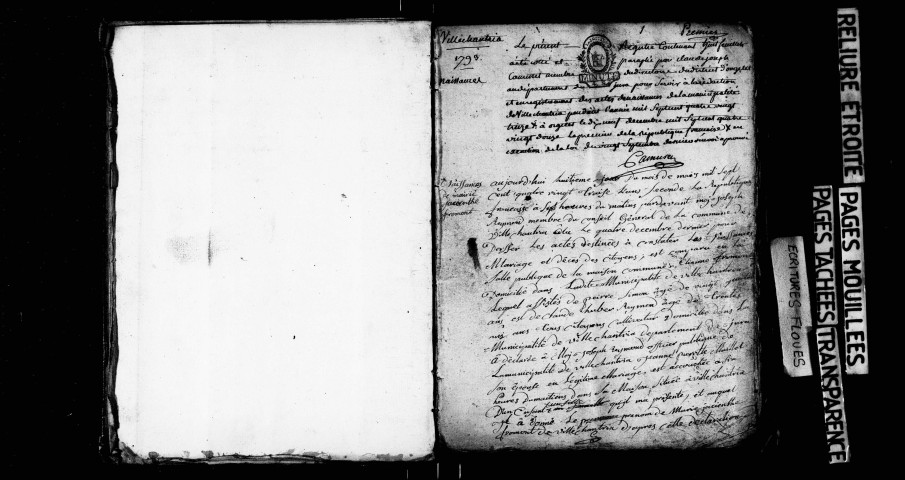 Villechantria
1793
naissances
Premier
Le présent Registre Contenant huit feuillets
été coté et paraphé par claude joseph
Camuset membre du directoire du district d'orgelet
au département du jura pour servir à la rédaction
et enregistrement des actes de naissances de la municipalité
de Villechantria pendant l'année mil sept cent quatre vingt
treize à orgelet le dix neuf decembre mil sept cent quatre
vingt douze la premiere de la république francaise en
execution de la loi du vingt septembre dernier
Camuset
Naissances
de marie
jacointhe
fromont
aujourd'hui huitieme jour du mois de mars mil sept
cent quatre vingt treize l'an seconde la Republique
francaise à sept heures du matin pardevant moi joseph
Raymond membre du conseil Général de la commune de
Villechantria élu le quatre decembre dernier pour
Dresser Les actes destinées à constater les Naissances
Mariage et décès des citoyens, est comparu en la
salle publique de la maison commune etienne fromont
Domicilié dans Ladite Municipalité de villechantria
Lequel assistés de pierre Simon agé de vingt
ans, et de claude humber Raymond agé de trente
ans tous citoyens cultivateur domicilié dans la
Municipalité de villechantria departement du jura
a déclaré à Moi joseph raymond officier publique de
La municipalité de villechantria
son épouse en Legitime Mariage, est accouchée a
heures du matin dans la Maison située à villechantria
D'un Enfant femelle qu'il m'a présenté, et auquel
il a donné Le prenom de Marie jacointhe
fromont de villechantria D'après cette déclaration
RELIURE ETROITE
PAGES MOUILLEES
PAGES TACHEES
TRANSPARENCE
ECRITURES FLOUES